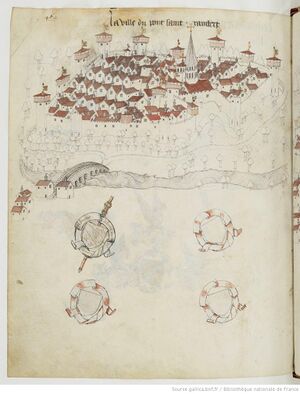 La ville du pont saint rambert
Source gallica.bnf.fr / Bibliothèque nationale de France